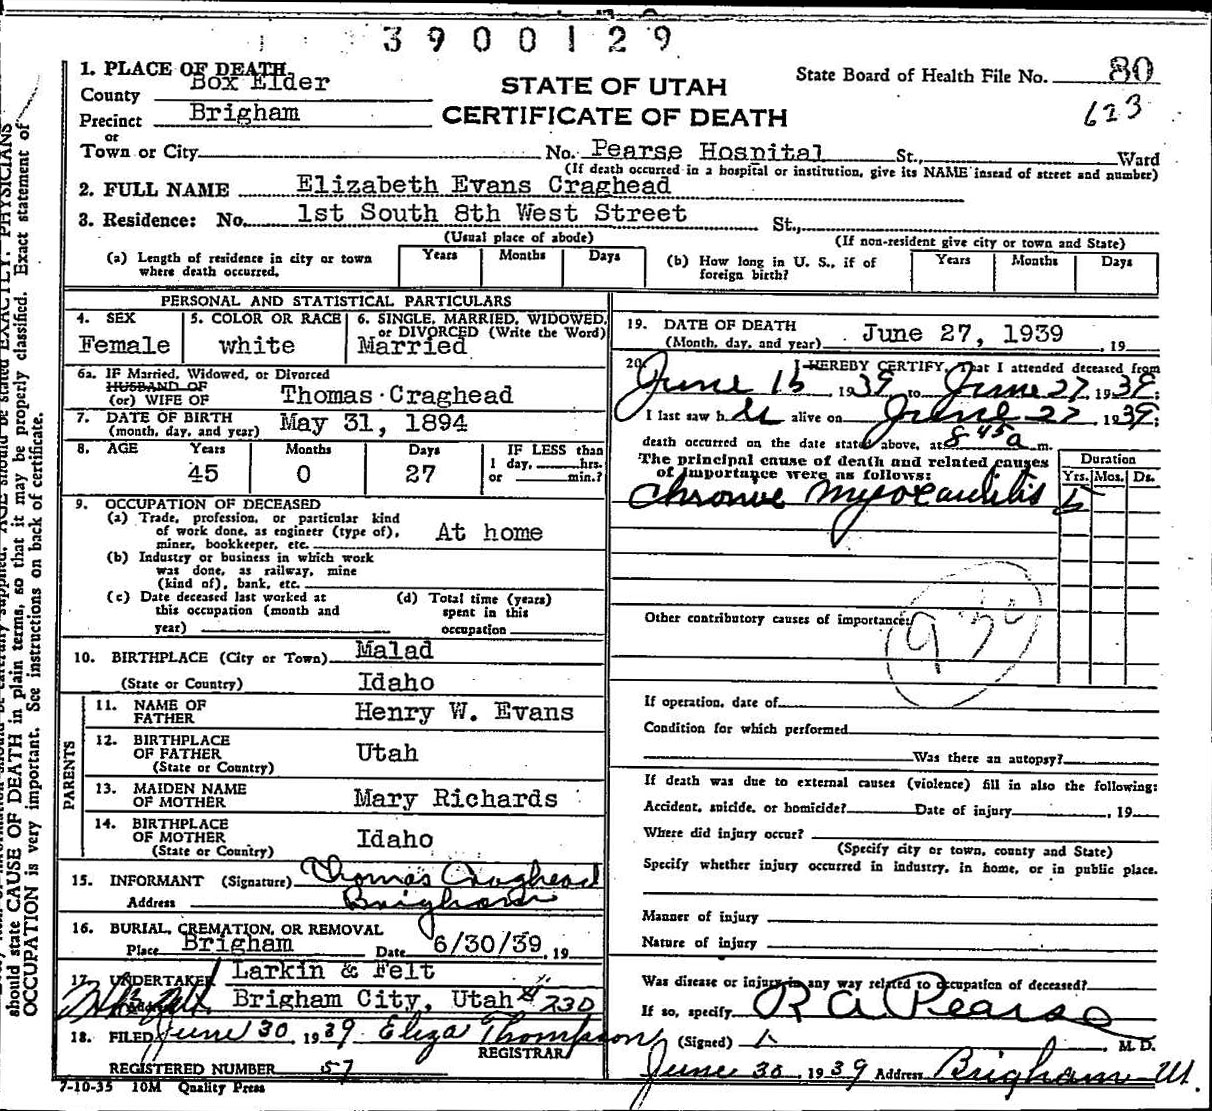 3900129
1. PLACE OF DEATH
State Board of Health File No. 80
County Box Elder
STATE OF UTAH
623
Precinct Brigham
CERTIFICATE OF DEATH
or
Town or City No. Pearse Hospital St., Ward
(If death occurred in a hospital or institution, give its NAME insead of street and number)
2. FULL NAME Elizabeth Evans Craghead
3. Residence: No. 1st South 8th West Street St.,
(Usual place of abode) (If non-resident give city or town and State)
(a) Length of residence in city or town where death occurred. Years Months Days
(b) How long in U. S., if of foreign birth? Years Months Days
PERSONAL AND STATISTICAL PARTICULARS
4. SEX Female
5. COLOR OR RACE white
6. SINGLE, MARRIED, WIDOWED, or DIVORCED (Write the Word) Married
6a. IF Married, Widowed, or Divorced
HUSBAND OF
(or) WIFE OF Thomas Craghead
7. DATE OF BIRTH
(month, day, and year) May 31, 1894
8. AGE Years Months Days IF LESS than
45 0 27 1 day, hrs.
or min.?
9. OCCUPATION OF DECEASED
(a) Trade, profession, or particular kind
of work done, as engineer (type of),
miner, bookkeeper, etc. At home
(b) Industry or business in which work
was done, as railway, mine
(kind of), bank, etc.
(c) Date deceased last worked at
this occupation (month and
year)
(d) Total time (years)
spent in this
occupation
10. BIRTHPLACE (City or Town) Malad
(State or Country) Idaho
PARENTS
11. NAME OF
FATHER Henry W. Evans
12. BIRTHPLACE
OF FATHER Utah
(State or Country)
13. MAIDEN NAME
OF MOTHER Mary Richards
14. BIRTHPLACE
OF MOTHER Idaho
(State or Country)
15. INFORMANT (Signature) Thomas Craghead
Address Brigham
16. BURIAL, CREMATION, OR REMOVAL
Place Brigham Date 6/30/39, 19
17. UNDERTAKER Larkin & Felt
Brigham City, Utah # 230
18. FILED June 30, 1939 Eliza Thompson
REGISTRAR
REGISTERED NUMBER 57
7-10-35 10M Quality Press
19. DATE OF DEATH
(Month, day, and year) June 27, 1939, 19
20. I HEREBY CERTIFY, That I attended deceased from
June 15, 1939 to June 27, 1939;
I last saw h er alive on June 27, 1939;
death occurred on the date stated above, at 8 45 a m.
The principal cause of death and related causes
of importance were as follows:
Duration
Yrs. Mos. Ds.
Chronic Myocarditis 5
Other contributory causes of importance:
If operation, date of
Condition for which performed
Was there an autopsy?
If death was due to external causes (violence) fill in also the following:
Accident, suicide, or homicide? Date of injury , 19
Where did injury occur?
(Specify city or town, county and State)
Specify whether injury occurred in industry, in home, or in public place.
Manner of injury
Nature of injury
Was disease or injury in any way related to occupation of deceased?
If so, specify
R A Pearse
(Signed) , M. D.
June 30, 1939 Address Brigham Ut.
should state CAUSE OF DEATH in plain terms, so that it may be properly classified. Exact statement of
OCCUPATION is very important. See instructions on back of certificate.